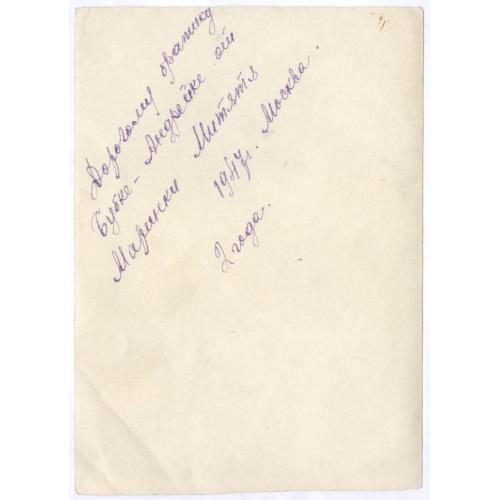 Дорогому братику
Бубке - Андрейке от
Маринки Митятя
1947г. Москва.
2 года.